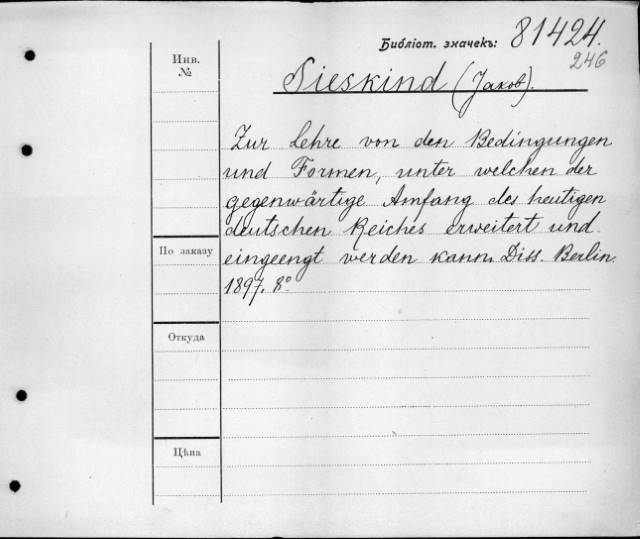 Библіот. значекъ: 81424.
246
Инв.
№
Pieskind (Jakob).
Zur Lehre von den Bedingungen
und Formen, unter welchen der
gegenwärtige Amfang des heutigen
deutschen Reiches erweitert und
eingeengt werden kann. Diss. Berlin.
1897. 8°
По заказу
Откуда
Цѣна